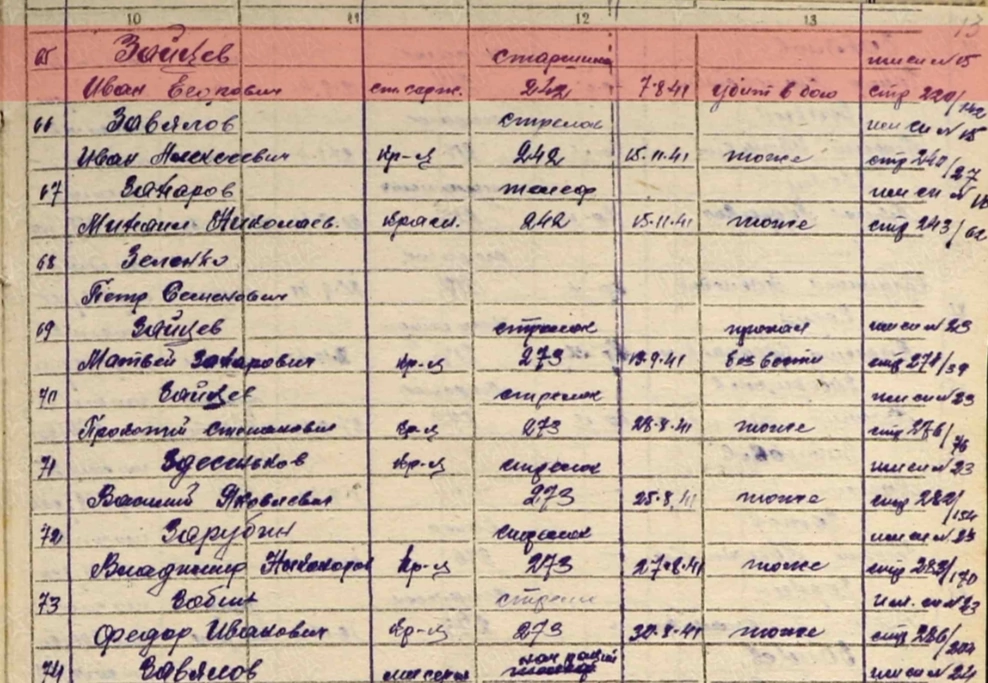 10 11 12 13 13
65 Зайцев старшина писм N 15
Иван Егорович ст. серж. 242 7.8.41 убит в бою стр 220/142
66 Завялов стрелок N 15
Иван Алексеевич кр-ц 242 15.11.41 тоже стр 240/27
67 Захаров N
Михаил Николаев. красн. 242 15.11.41 тоже стр 243/62
68 Зеленко
Петр Семенович
69 Зайцев стрелок пропал N 23
Матвей Захарович кр-ц 273 273 без вести стр 271/39
70 Зайцев стрелок N 23
Степанович кр-ц 273 28.8.41 тоже стр 276/76
71 Здесенков кр-ц стрелок N 23
Василий Яковлевич 273 25.8.41 тоже стр 282/154
72 Зарубин стрелок N 23
Владимир Никаноров кр-ц 273 27.8.41 тоже стр 283/170
73 Зобнин стрелок N 23
Федор Иванович кр-ц 273 30.8.41 тоже стр 286/204
74 Завялов N 24